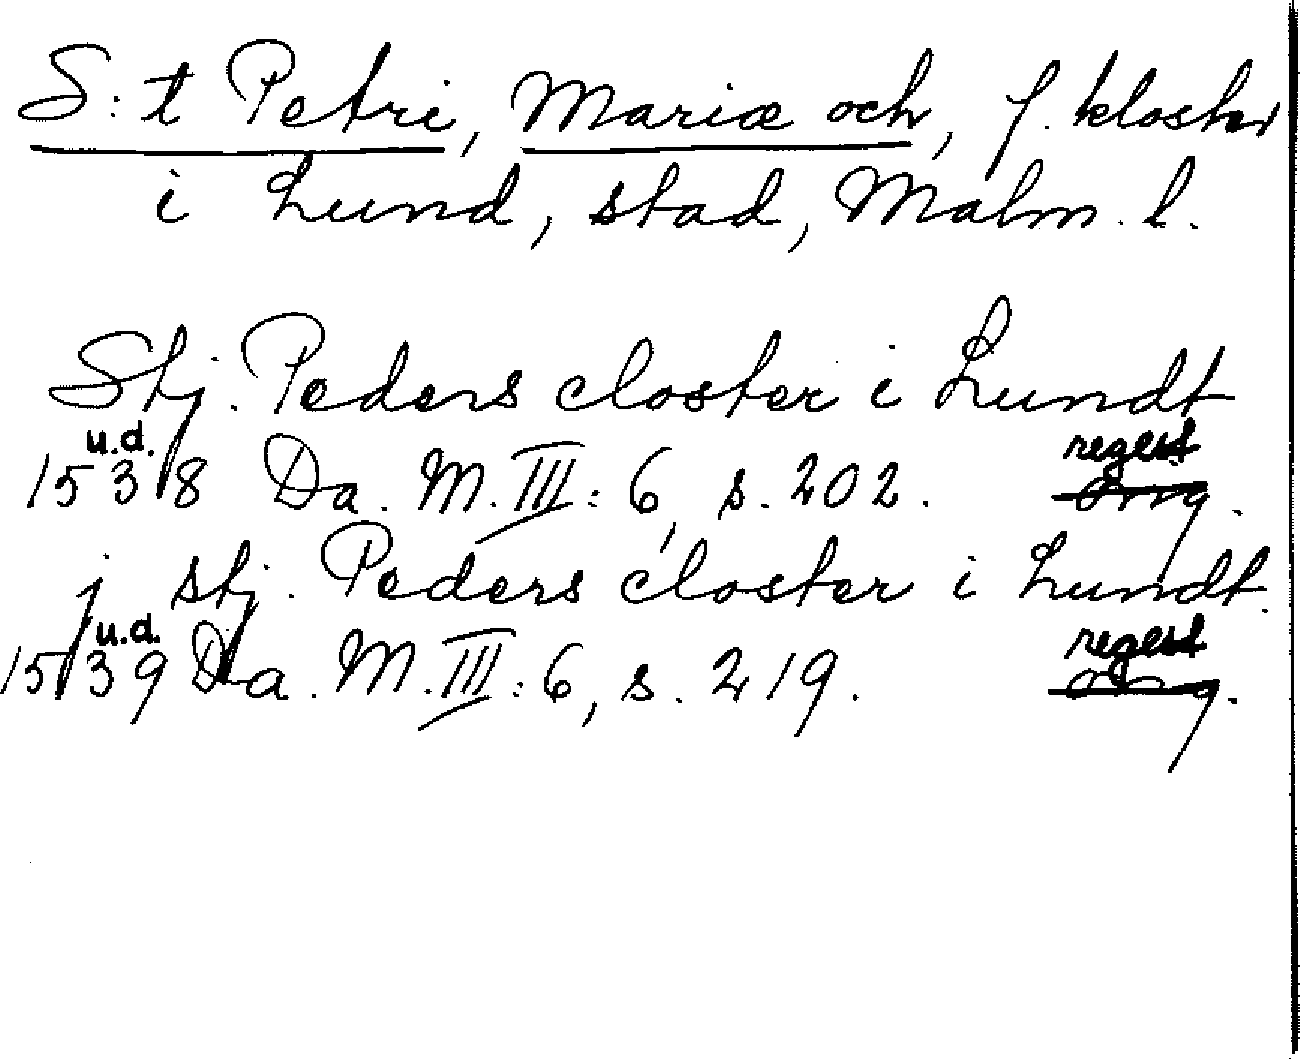 S:t Petri, Mariæ och, f. kloster
i Lund, stad, Malm. l.
Stj. Peders closter i Lundt
u.d. regest
1538 Da. M. III: 6, s. 202. orig.
j stj. Peders closter i Lundt.
u.d. regest
1539 Da. M. III: 6, s. 219. orig.